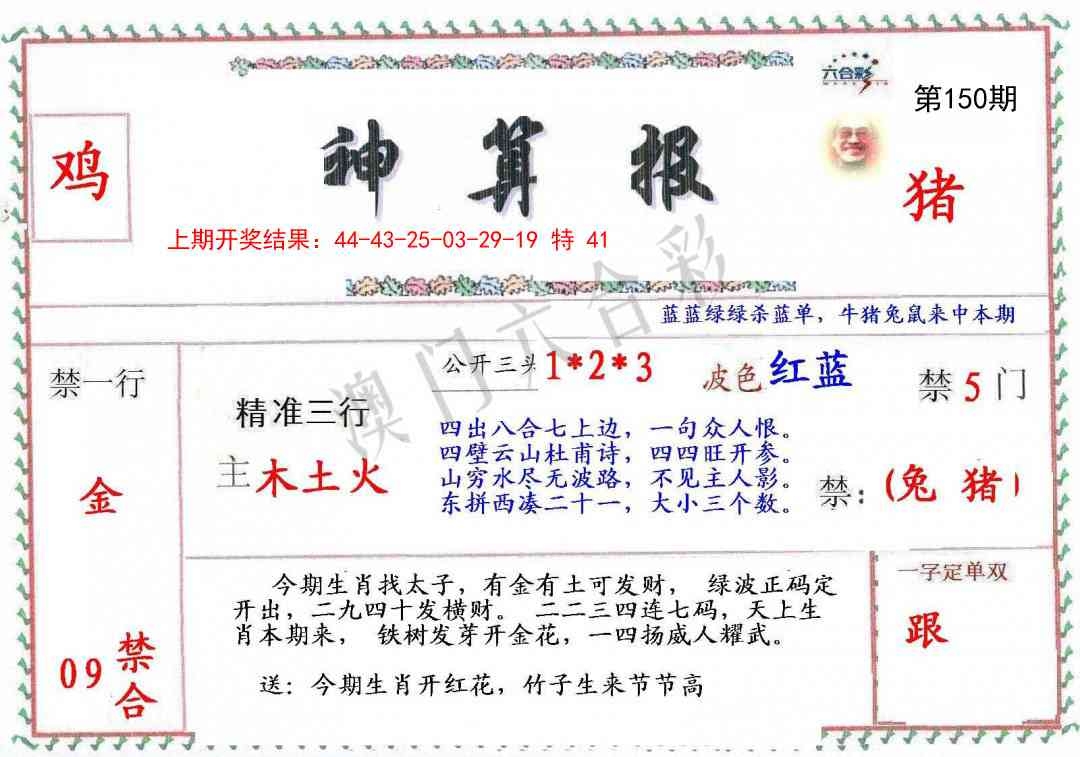 六合彩
第150期
鸡
神算报
猪
上期开奖结果：44-43-25-03-29-19 特 41
澳门六合彩
蓝蓝绿绿杀蓝单，牛猪兔鼠来中本期
禁一行
公开三头 1*2*3 波色 红蓝
禁 5 门
精准三行
主 木土火
四出八合七上边，一句众人恨。
四壁云山杜甫诗，四四旺开参。
山穷水尽无波路，不见主人影。
东拼西凑二十一，大小三个数。
金
禁：(兔 猪)
今期生肖找太子，有金有土可发财， 绿波正码定
开出，二九四十发横财。 二二三四连七码，天上生
肖本期来， 铁树发芽开金花，一四扬威人耀武。
送：今期生肖开红花，竹子生来节节高
一字定单双
跟
09 禁合